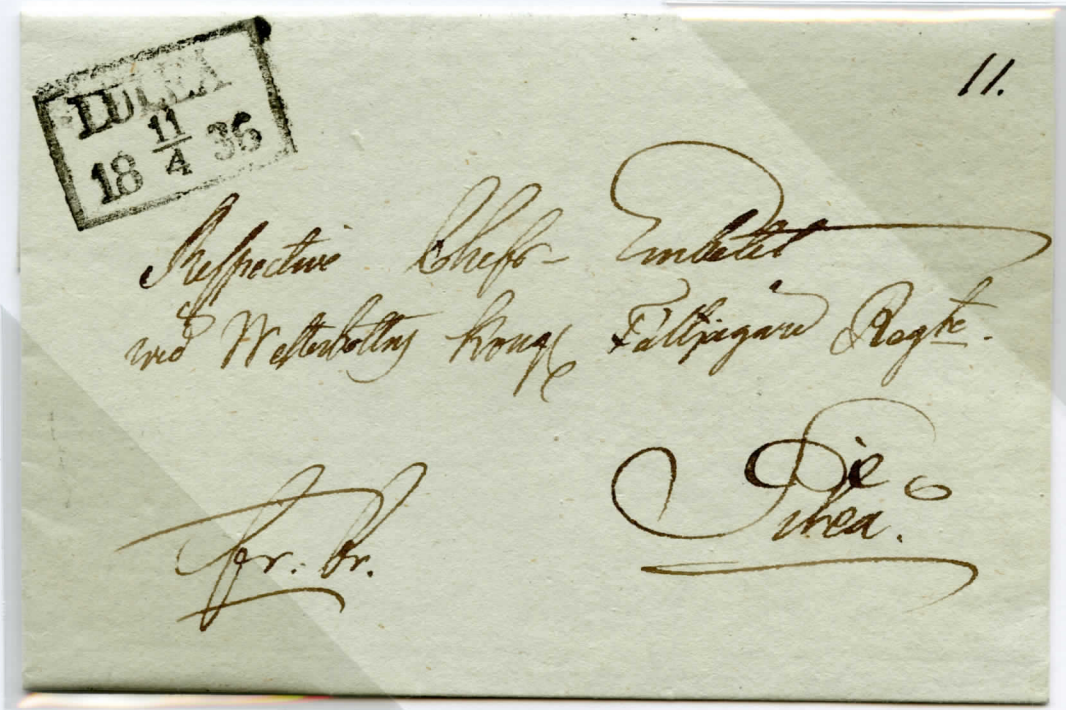 LULEÅ
18 11/4 36
11.
Respective Chefs- Embetet
wid Westerbottns Kongl Fältjägare Regte.
Piteå.
fr. Br.